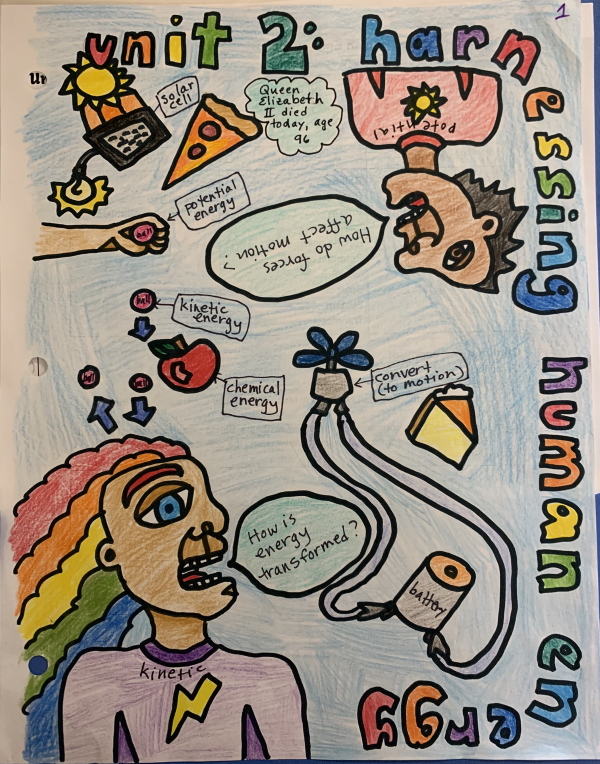 1
unit 2: harnessing human energy
solar
cell
Queen
Elizabeth
II died
today, age
96
potential
potential
energy
How do forces
affect motion?
ball
ball
kinetic
energy
ball
ball
chemical
energy
convert
(to motion)
How is
energy
transformed?
battery
kinetic